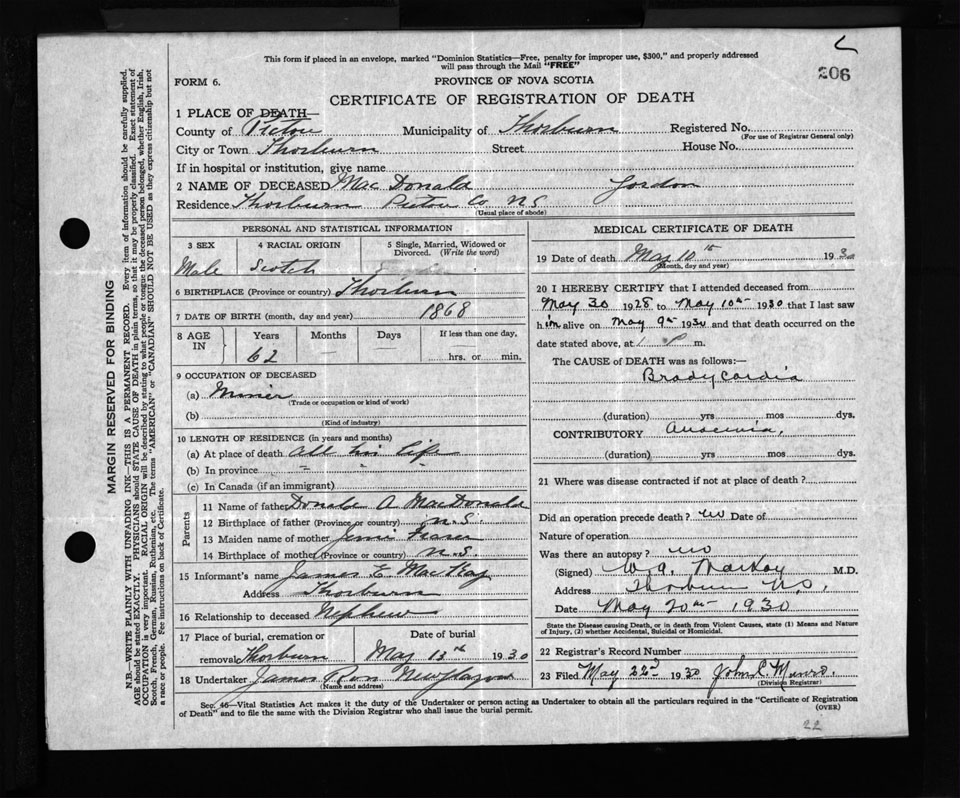 This form if placed in an envelope, marked "Dominion Statistics—Free, penalty for improper use, $300," and properly addressed
will pass through the Mail "FREE"
206
FORM 6.
PROVINCE OF NOVA SCOTIA
CERTIFICATE OF REGISTRATION OF DEATH
1 PLACE OF DEATH—
County of Pictou Municipality of Thorburn Registered No.
(For use of Registrar General only)
City or Town Thorburn Street House No.
If in hospital or institution, give name
2 NAME OF DECEASED MacDonald Gordon
Residence Thorburn Pictou Co NS
(Usual place of abode)
PERSONAL AND STATISTICAL INFORMATION
3 SEX 4 RACIAL ORIGIN 5 Single, Married, Widowed or
Divorced. (Write the word)
Male Scotch
6 BIRTHPLACE (Province or country) Thorburn
7 DATE OF BIRTH (month, day and year) 1868
8 AGE IN Years Months Days If less than one day,
62 hrs. or min.
9 OCCUPATION OF DECEASED
(a) Miner
(Trade or occupation or kind of work)
(b)
(Kind of industry)
10 LENGTH OF RESIDENCE (in years and months)
(a) At place of death all his life
(b) In province " " "
(c) In Canada (if an immigrant)
Parents
11 Name of father Donald A MacDonald
12 Birthplace of father (Province or country) N.S.
13 Maiden name of mother Jennie Fraser
14 Birthplace of mother (Province or country) N.S.
15 Informant's name James E MacKay
Address Thorburn
16 Relationship to deceased Nephew
17 Place of burial, cremation or Date of burial
removal Thorburn May 13th 1930
18 Undertaker James Ross New Glasgow
(Name and address)
MEDICAL CERTIFICATE OF DEATH
19 Date of death May 10th 1930
(Month, day and year)
20 I HEREBY CERTIFY that I attended deceased from
May 30 1928 to May 10th 1930 that I last saw
him alive on May 9th 1930 and that death occurred on the
date stated above, at P m.
The CAUSE of DEATH was as follows:—
Bradycardia
(duration) yrs mos dys.
CONTRIBUTORY Anaemia,
(duration) yrs mos dys.
21 Where was disease contracted if not at place of death?
Did an operation precede death? no Date of
Nature of operation
Was there an autopsy? no
(Signed) W.A. MacKay M.D.
Address Thorburn N.S,
Date May 20th 1930
State the Disease causing Death, or in death from Violent Causes, state (1) Means and Nature
of Injury, (2) whether Accidental, Suicidal or Homicidal.
22 Registrar's Record Number
23 Filed May 22d 1930 John C. Munro.
(Division Registrar)
Sec. 46—Vital Statistics Act makes it the duty of the Undertaker or person acting as Undertaker to obtain all the particulars required in the "Certificate of Registration
of Death" and to file the same with the Division Registrar who shall issue the burial permit.
(OVER)
22
MARGIN RESERVED FOR BINDING
N.B.—WRITE PLAINLY WITH UNFADING INK—THIS IS A PERMANENT RECORD. Every item of information should be carefully supplied.
AGE should be stated EXACTLY. PHYSICIANS should STATE CAUSE OF DEATH in plain terms, so that it may be properly classified. Exact statement of
OCCUPATION is very important. RACIAL ORIGIN will be described by stating to what people or tongue the deceased person belonged, whether English, Irish,
Scotch, French, German, Russian, Ruthenian, etc. The terms "AMERICAN" or "CANADIAN" SHOULD NOT BE USED as they express citizenship but not
a race or people. See instructions on back of Certificate.